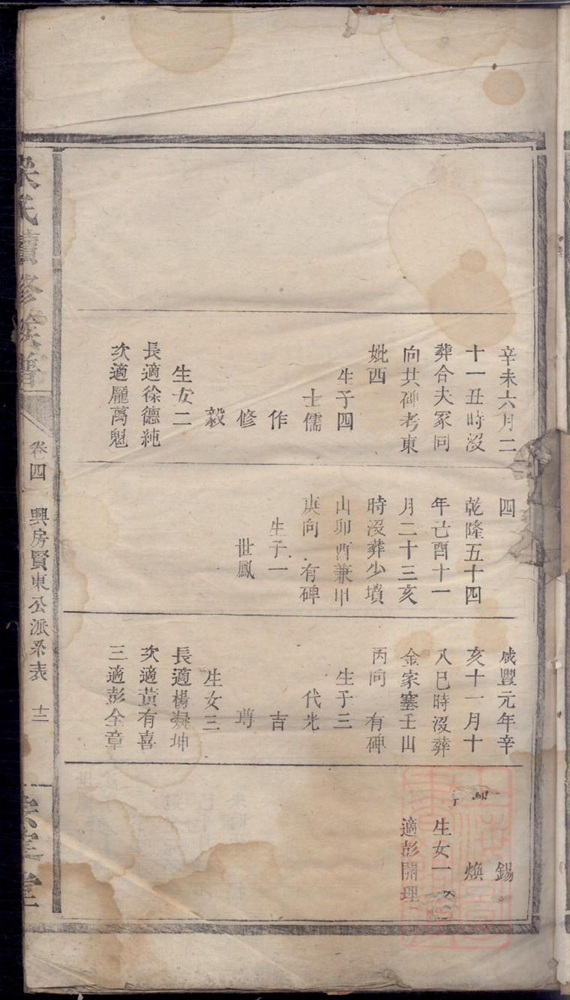 辛未六月二
十一丑時沒
葬合夫冢同
向共碑考東
妣西
生子四
士儒
作
修
毅
生女二
長適徐德純
次適龎萬魁
四
乾隆五十四
年己酉十一
月二十三亥
時沒葬少墳
山卯酉兼甲
庚向 有碑
生子一
世鳳
咸豐元年辛
亥十一月十
八巳時沒葬
金家塞壬山
丙向 有碑
生子三
代光
吉
生女三
長適楊坤
次適黃有喜
三適彭全章
錫
煥
生女一
適彭開理
氏續修族譜
卷四
興房賢東公派系表
十三